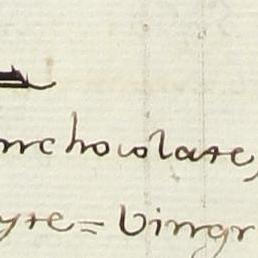 mchocolate,
yte=Vingr